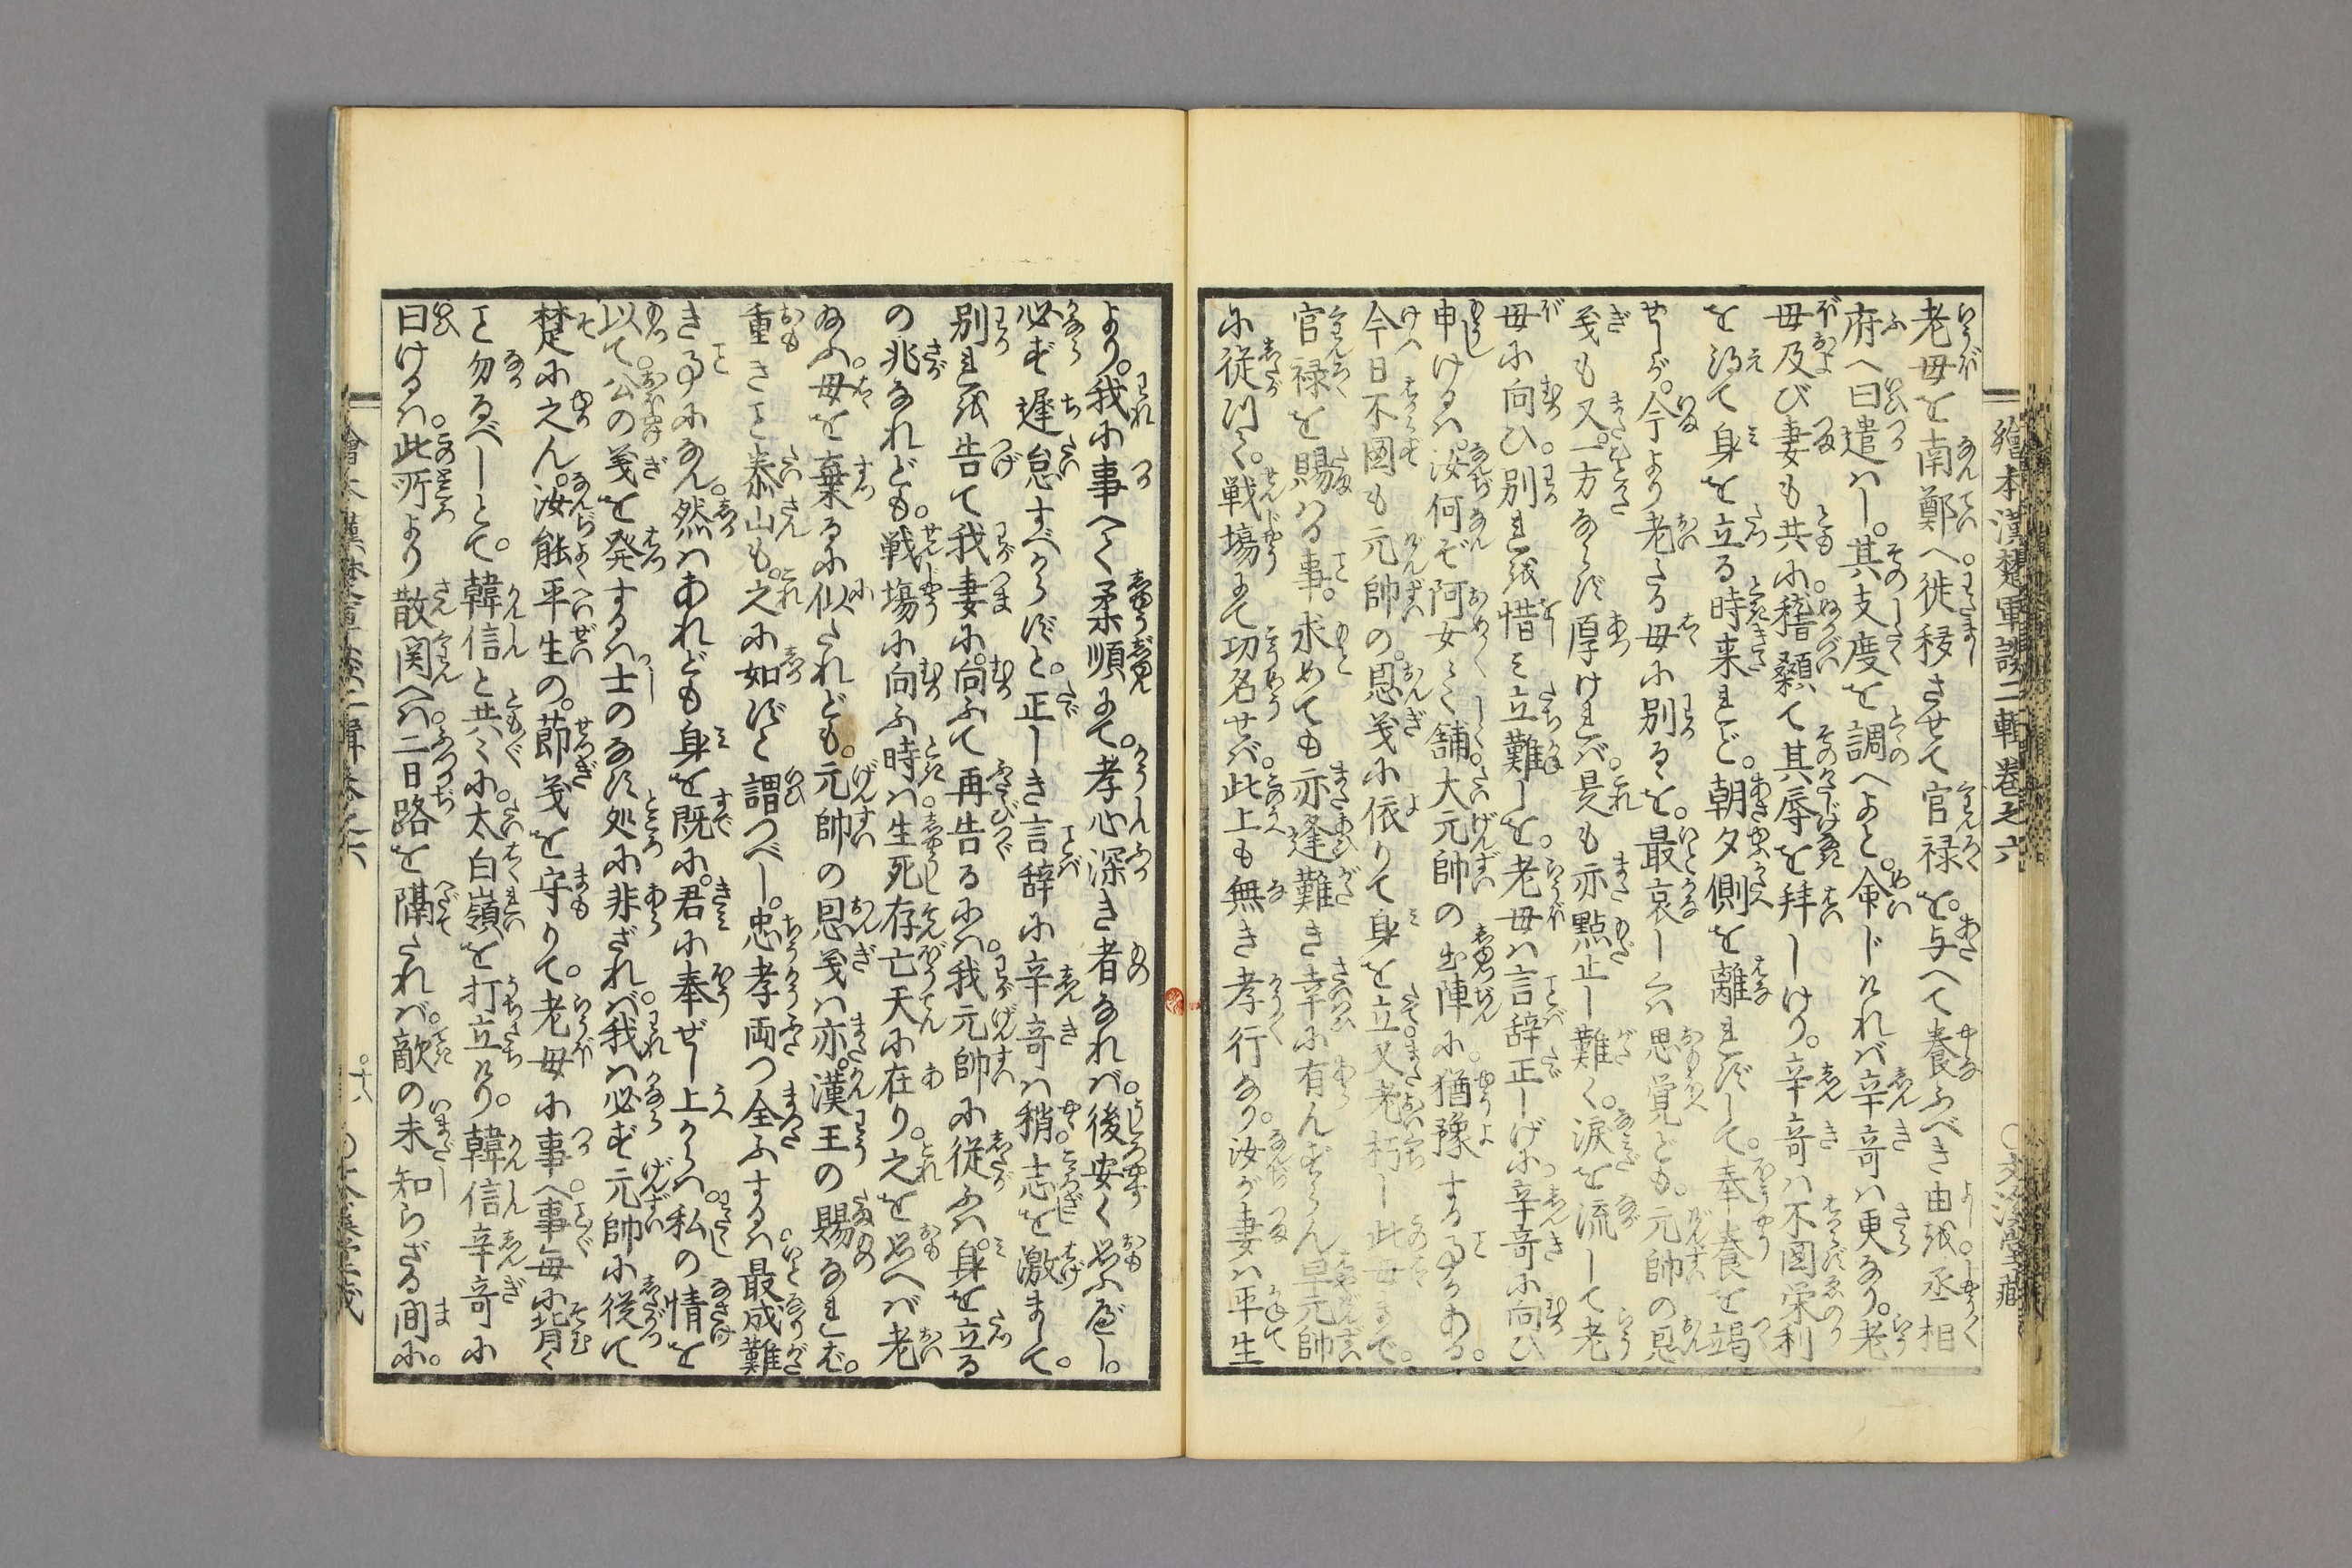 繪本漢楚軍談二輯卷之六
老母を南鄭へ徙移させて官禄を与へて養ふべき由を丞相
府へ曰遣はし。其支度を調へよと命じければ辛奇は更なり。老
母及び妻も共に稽顙て其辱を拝しけり。辛奇は不圖栄利
を得て身を立る時来れど。朝夕側を離れずして。奉養を竭
せしが。今より老たる母に別るゝを。最哀しくは思覚ども。元帥の恩
義も又一方ならず厚ければ。是も亦黙止し難く。涙を流して老
母に向ひ。別れを惜み立難しを。老母は言辞正しげに辛奇に向ひ
申けるは。汝何ぞ阿女々しく。大元帥の出陣に猶豫する事かある。
今日不圖も元帥の。恩義に依りて身を立。又老朽し此母まで。
官禄を賜はる事。求めても亦逢難き幸に有んずらん。早元帥
に従ひて。戦場にて功名せば。此上も無き孝行なり。汝が妻は平生
より。我に事へて柔順にて。孝心深き者なれば。後安く思ふべし。
必ず遅怠すべからずと。正しき言辞に辛奇は稍。志を激まして。
別れを告て我妻に。向ふて再告るには。我元帥に従ふは。身を立る
の兆なれども。戦場に向ふ時は生死存亡天に在り。之を思へば老
ゐふ。母を棄るに似たれども。元帥の恩義は亦。漢王の賜なれば。
重きこと泰山も。之に如ずと謂つべし。忠孝両つ全ふするは。最成難
き事になん。然はあれども身を既に。君に奉ぜし上からは。私の情を
以て。公の義を発するは士のなす処に非ざれば。我は必ず元帥に従て
楚に之ん。汝能平生の。節義を守りて。老母に事へ。事毎に背く
こと勿るべしとて。韓信と共々に。太白嶺を打立けり。韓信辛奇に
曰けるは。此所より散関へは。二日路を隔たれば。敵の未知らざる間に。